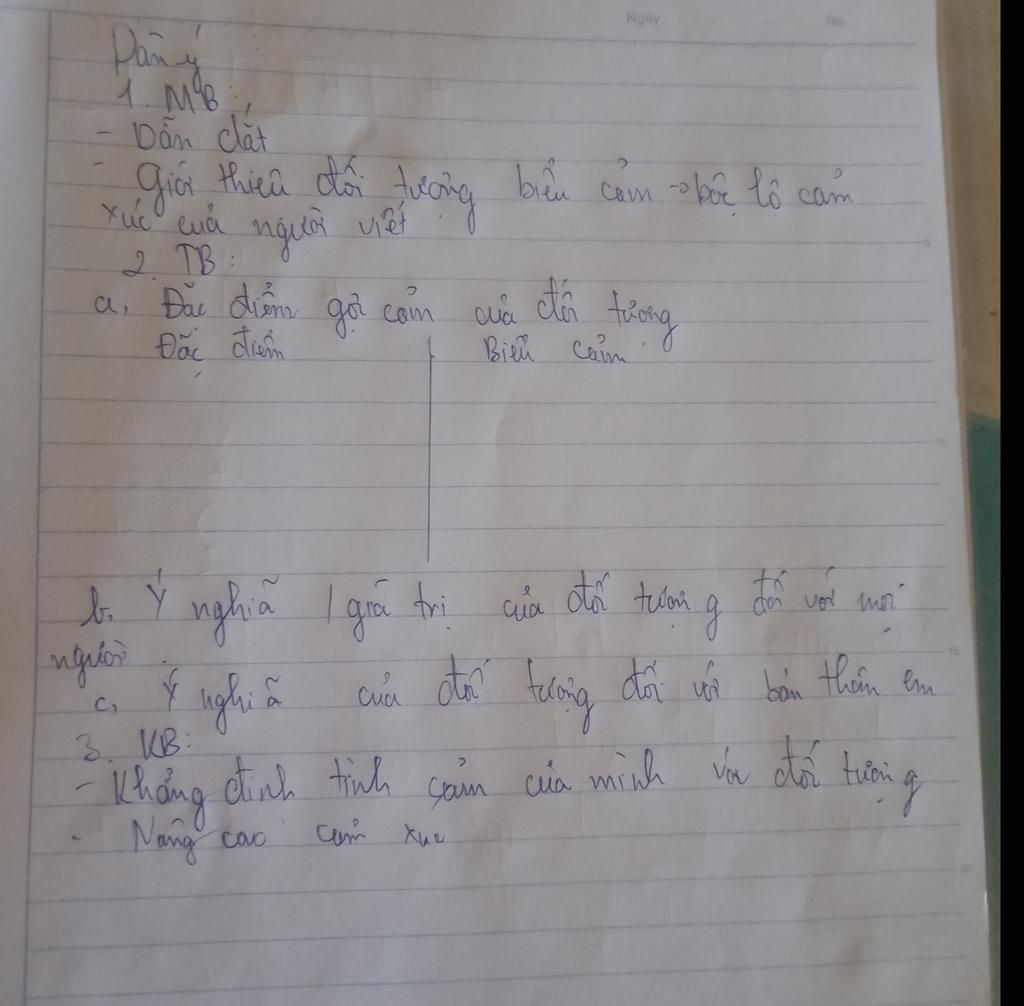 Ngày No
Dàn ý
1. MB:
- Dẫn dắt
- Giới thiệu đối tượng biểu cảm → bộc lộ cảm
xúc của người viết
2. TB:
a, Đặc điểm gợi cảm của đối tượng
Đặc điểm Biểu cảm
b. Ý nghĩa / giá trị của đối tượng đối với mọi
người
c, Ý nghĩa của đối tượng đối với bản thân em
3. KB:
- Khẳng định tình cảm của mình với đối tượng
- Nâng cao cảm xúc